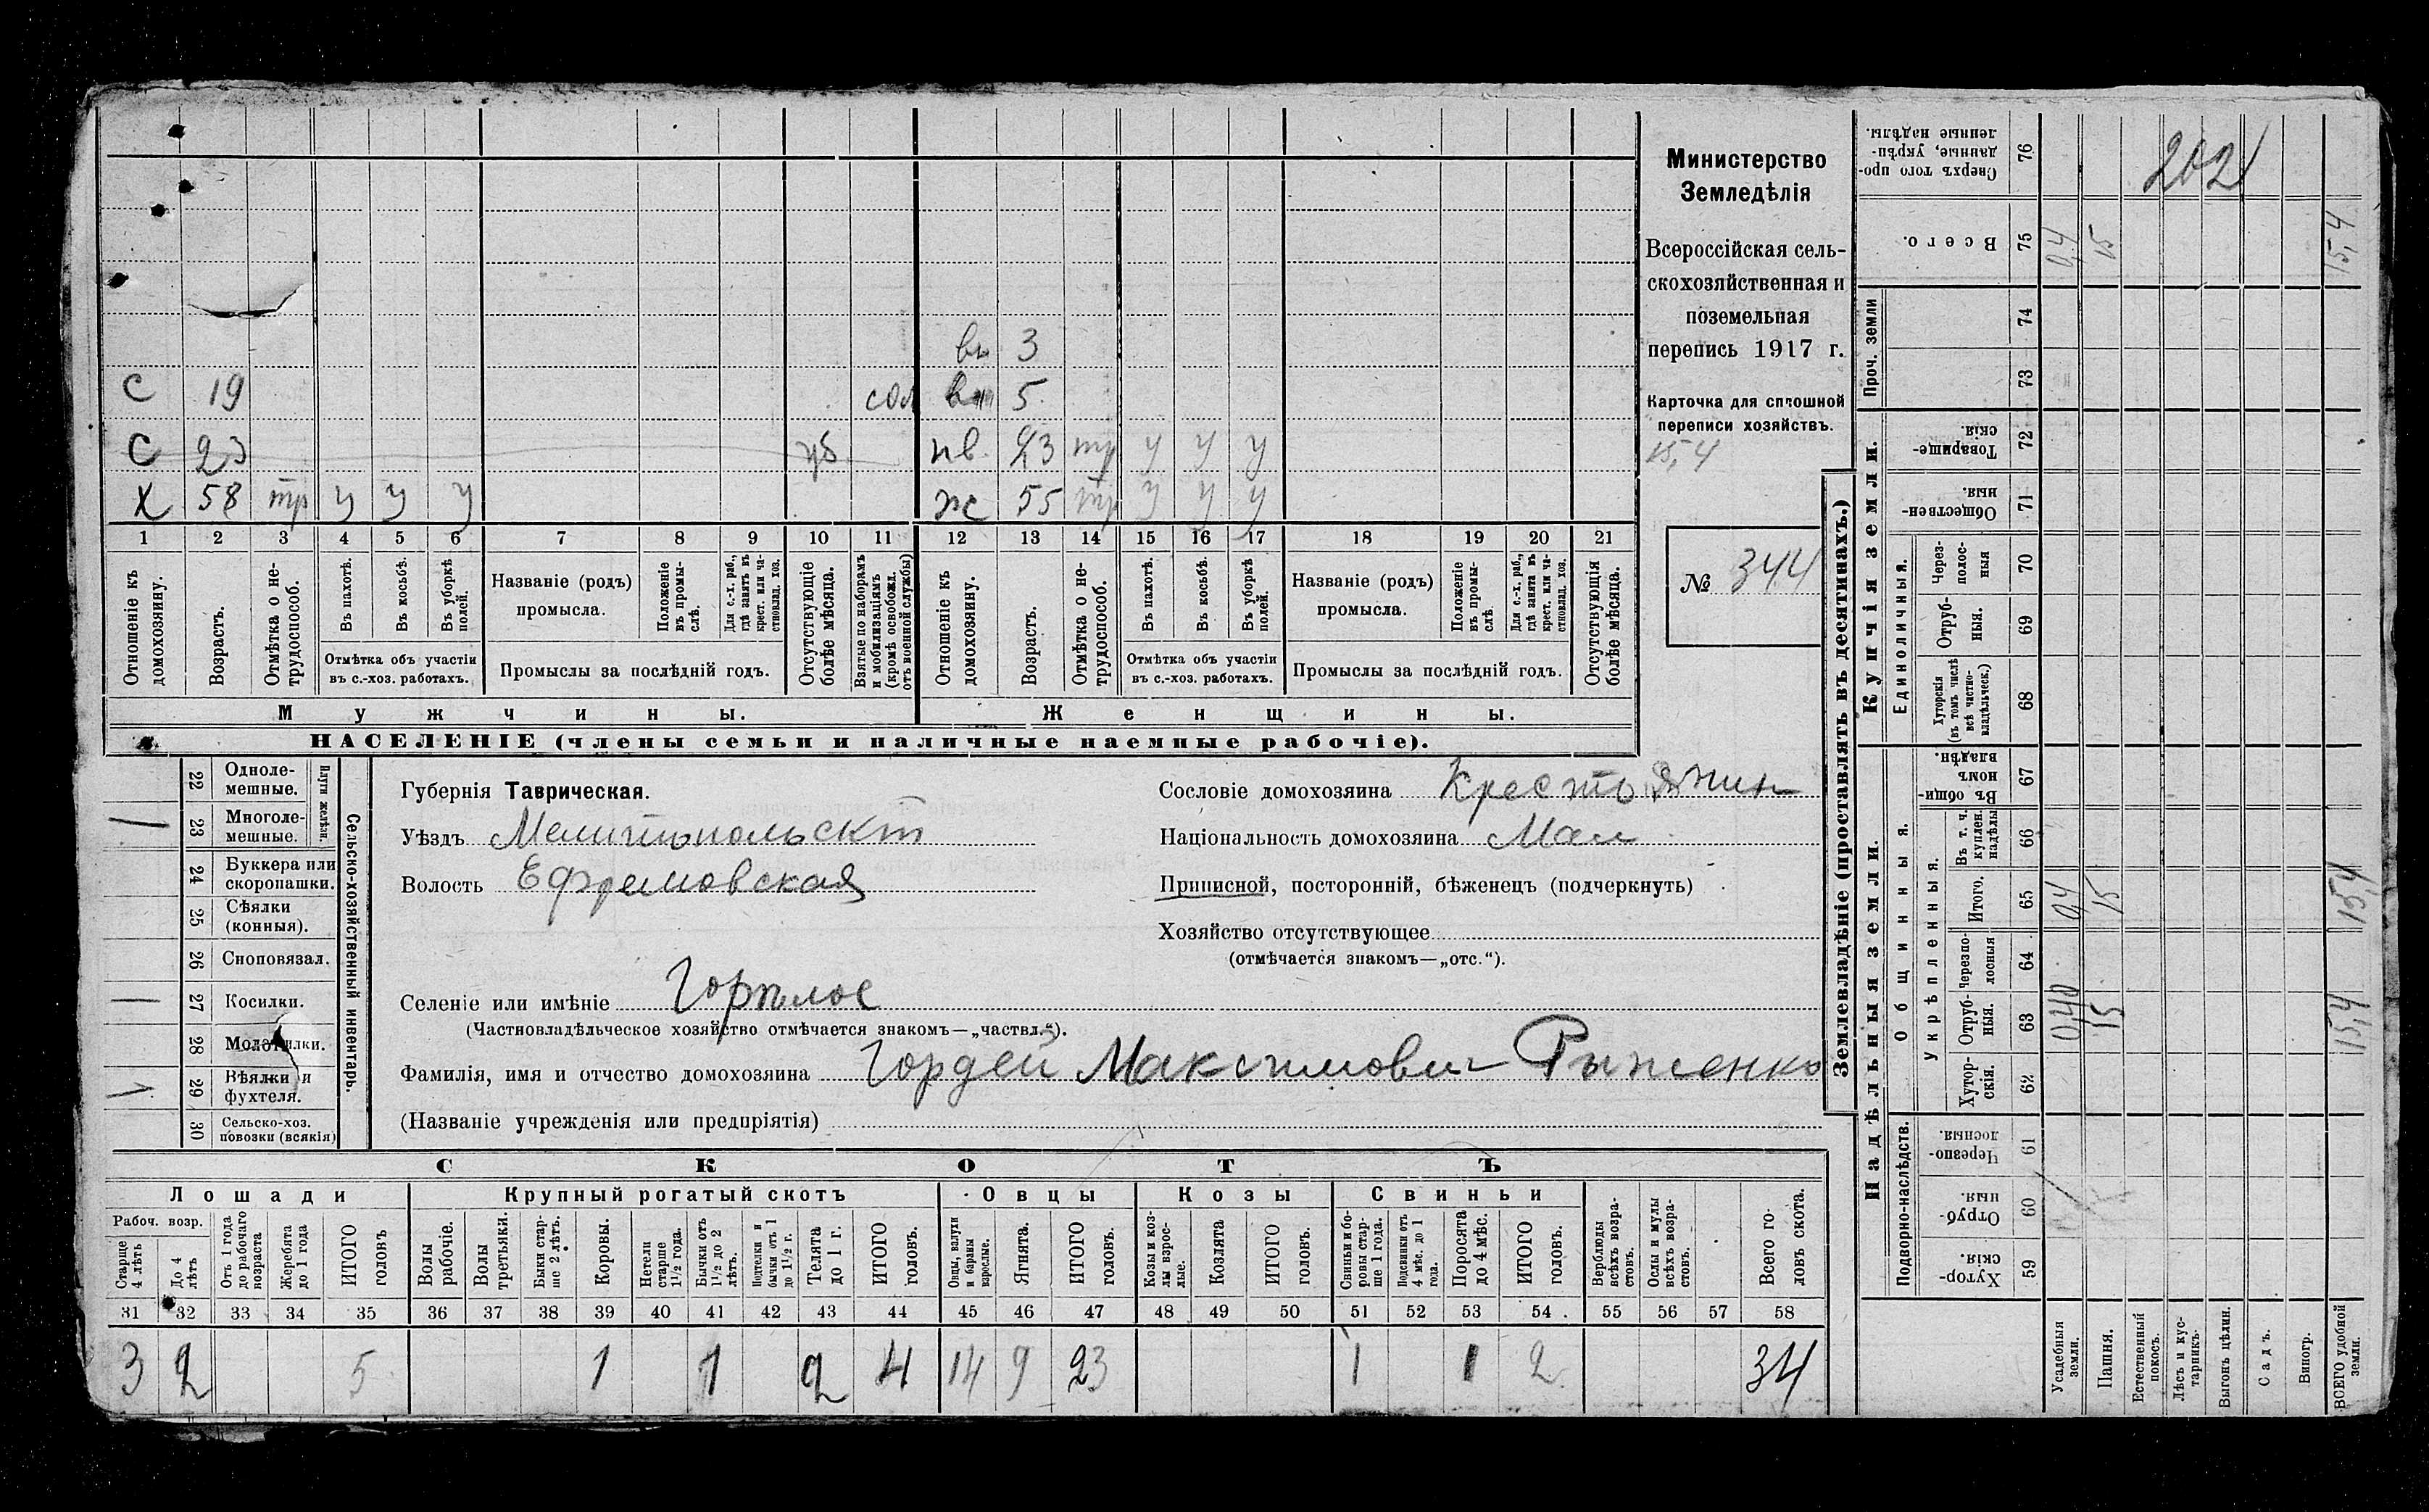 Министерство
Земледѣлія
Всероссійская сель-
скохозяйственная и
поземельная
перепись 1917 г.
Карточка для сплошной
переписи хозяйствъ.
15,4
№ 344
вн 3
С 19 сол вн 5
С 23 уб нв. 23 тр у у у
Х 58 тр у у у ж 55 тр у у у
1 2 3 4 5 6 7 8 9 10 11 12 13 14 15 16 17 18 19 20 21
Отношеніе къ домохозяину.
Возрастъ.
Отмѣтка о не-трудоспособ.
Въ пахотѣ.
Въ косьбѣ.
Въ уборкѣ полей.
Отмѣтка объ участіи
въ с.-хоз. работахъ.
Названіе (родъ)
промысла.
Положеніе въ промы-слѣ.
Для с.-х. раб., гдѣ занятъ въ крест. или ча-стновлад. хоз.
Промыслы за послѣдній годъ.
Отсутствующіе болѣе мѣсяца.
Взятые по наборамъ и мобилизаціямъ (кромѣ освобожд. отъ военной службы)
Отношеніе къ домохозяину.
Возрастъ.
Отмѣтка о не-трудоспособ.
Въ пахотѣ.
Въ косьбѣ.
Въ уборкѣ полей.
Отмѣтка объ участіи
въ с.-хоз. работахъ.
Названіе (родъ)
промысла.
Положеніе въ промы-слѣ.
Для с.-х. раб., гдѣ занята въ крест. или ча-стновлад. хоз.
Промыслы за послѣдній годъ.
Отсутствующія болѣе мѣсяца.
Мужчины. Женщины.
НАСЕЛЕНІЕ (члены семьи и наличные наемные рабочіе).
Сельско-хозяйственный инвентарь.
Плуги желѣзн.
22 Одноле-мешные.
23 Многоле-мешные.
24 Буккера или скоропашки.
25 Сѣялки (конныя).
26 Сноповязал.
27 Косилки.
28 Молотилки.
29 Вѣялки и фухтеля.
30 Сельско-хоз. повозки (всякія)
Губернія Таврическая.
Уѣздъ Мелитопольскій
Волость Ефремовская
Сословіе домохозяина Крестьянин
Національность домохозяина Мал
Приписной, посторонній, бѣженецъ (подчеркнуть)
Хозяйство отсутствующее
(отмѣчается знакомъ—„отс.“).
Селеніе или имѣніе Горѣлое
(Частновладѣльческое хозяйство отмѣчается знакомъ—„частвл.“).
Фамилія, имя и отчество домохозяина Гордей Максимович Рыженко
(Названіе учрежденія или предпріятія)
СКОТЪ
Лошади Крупный рогатый скотъ Овцы Козы Свиньи
Рабоч. возр.
Старше 4 лѣтъ
До 4 лѣтъ
Отъ 1 года до рабочаго возраста
Жеребята до 1 года
ИТОГО головъ
Волы рабочіе.
Волы третьяки.
Быки стар-ше 2 лѣтъ.
Коровы.
Нетели старше 1½ года.
Бычки отъ 1½ до 2 лѣтъ.
Подтелки и бычки отъ 1 до 1½ г.
Телята до 1 г.
ИТОГО головъ.
Овцы, валухи и бараны взрослые.
Ягнята.
ИТОГО головъ.
Козы и коз-лы взрос-лые.
Козлята
ИТОГО головъ.
Свиньи и бо-ровы стар-ше 1 года.
Подсвинки отъ 4 мѣс. до 1 года.
Поросята до 4 мѣс.
ИТОГО головъ.
Верблюды всѣхъ возра-стовъ.
Ослы и мулы всѣхъ возра-стовъ.
Всего го-ловъ скота.
31 32 33 34 35 36 37 38 39 40 41 42 43 44 45 46 47 48 49 50 51 52 53 54 55 56 57 58
3 2 5 1 1 2 4 14 9 23 1 1 2 34
Землевладѣніе (проставлять въ десятинахъ.)
Надѣльныя земли. Купчія земли. Проч. земли
Подворно-наслѣдств.
Общинныя.
Укрѣпленныя.
Единоличныя.
Сверхъ того про-данные, укрѣп-ленные надѣлы. 76
202
Всего. 75 0,4 15 15,4
74
73
Товарище-скія. 72
Обществен-ныя. 71
Через-полос-ныя 70
Отруб-ныя. 69
Хуторскія (въ томъ числѣ всѣ частно-владѣльческ.) 68
Въ общин-номъ владѣн. 67
Въ т. ч. куплен. надѣлы 66
Итого. 65 0,4 15 15,4
черезпо-лосныя 64
Отруб-ныя. 63 0,40 15 15,4
Хутор-скія. 62
Черезпо-лосныя. 61
Отруб-ныя. 60
Хутор-скія. 59
Усадебныя земли.
Пашня.
Естественный покосъ.
Лѣсъ и кус-тарникъ.
Выгонъ цѣлин.
Садъ.
Виногр.
ВСЕГО удобной земли.